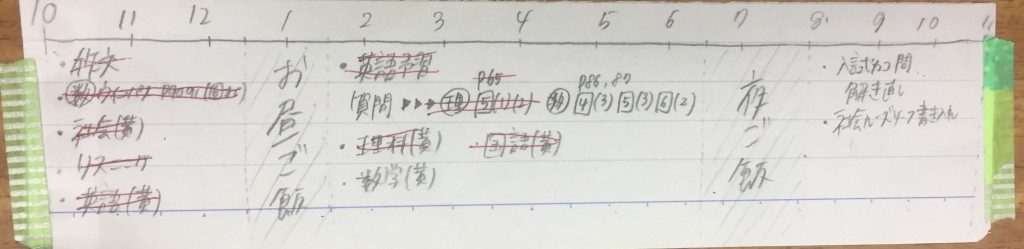 10 11 12 1 2 3 4 5 6 7 8 9 10 11
・作文
・数 ウイニング
・社会(黄)
・リスニング
・英語(黄)
お昼ご飯
・英語予習
P65
P86,87
質問 ▸▸▸ 理 5(1)(2) 数 4(3) 5(3) 6(2)
・理科(黄) 国語(黄)
・数学(黄)
夜ご飯
・入試カコ問
解き直し
・社会ルーズリーフ書き入れ